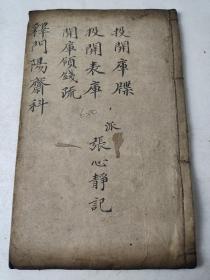 投開庫牒
投開表庫
開庫領錢疏
釋門陽齋科
派
張心靜記